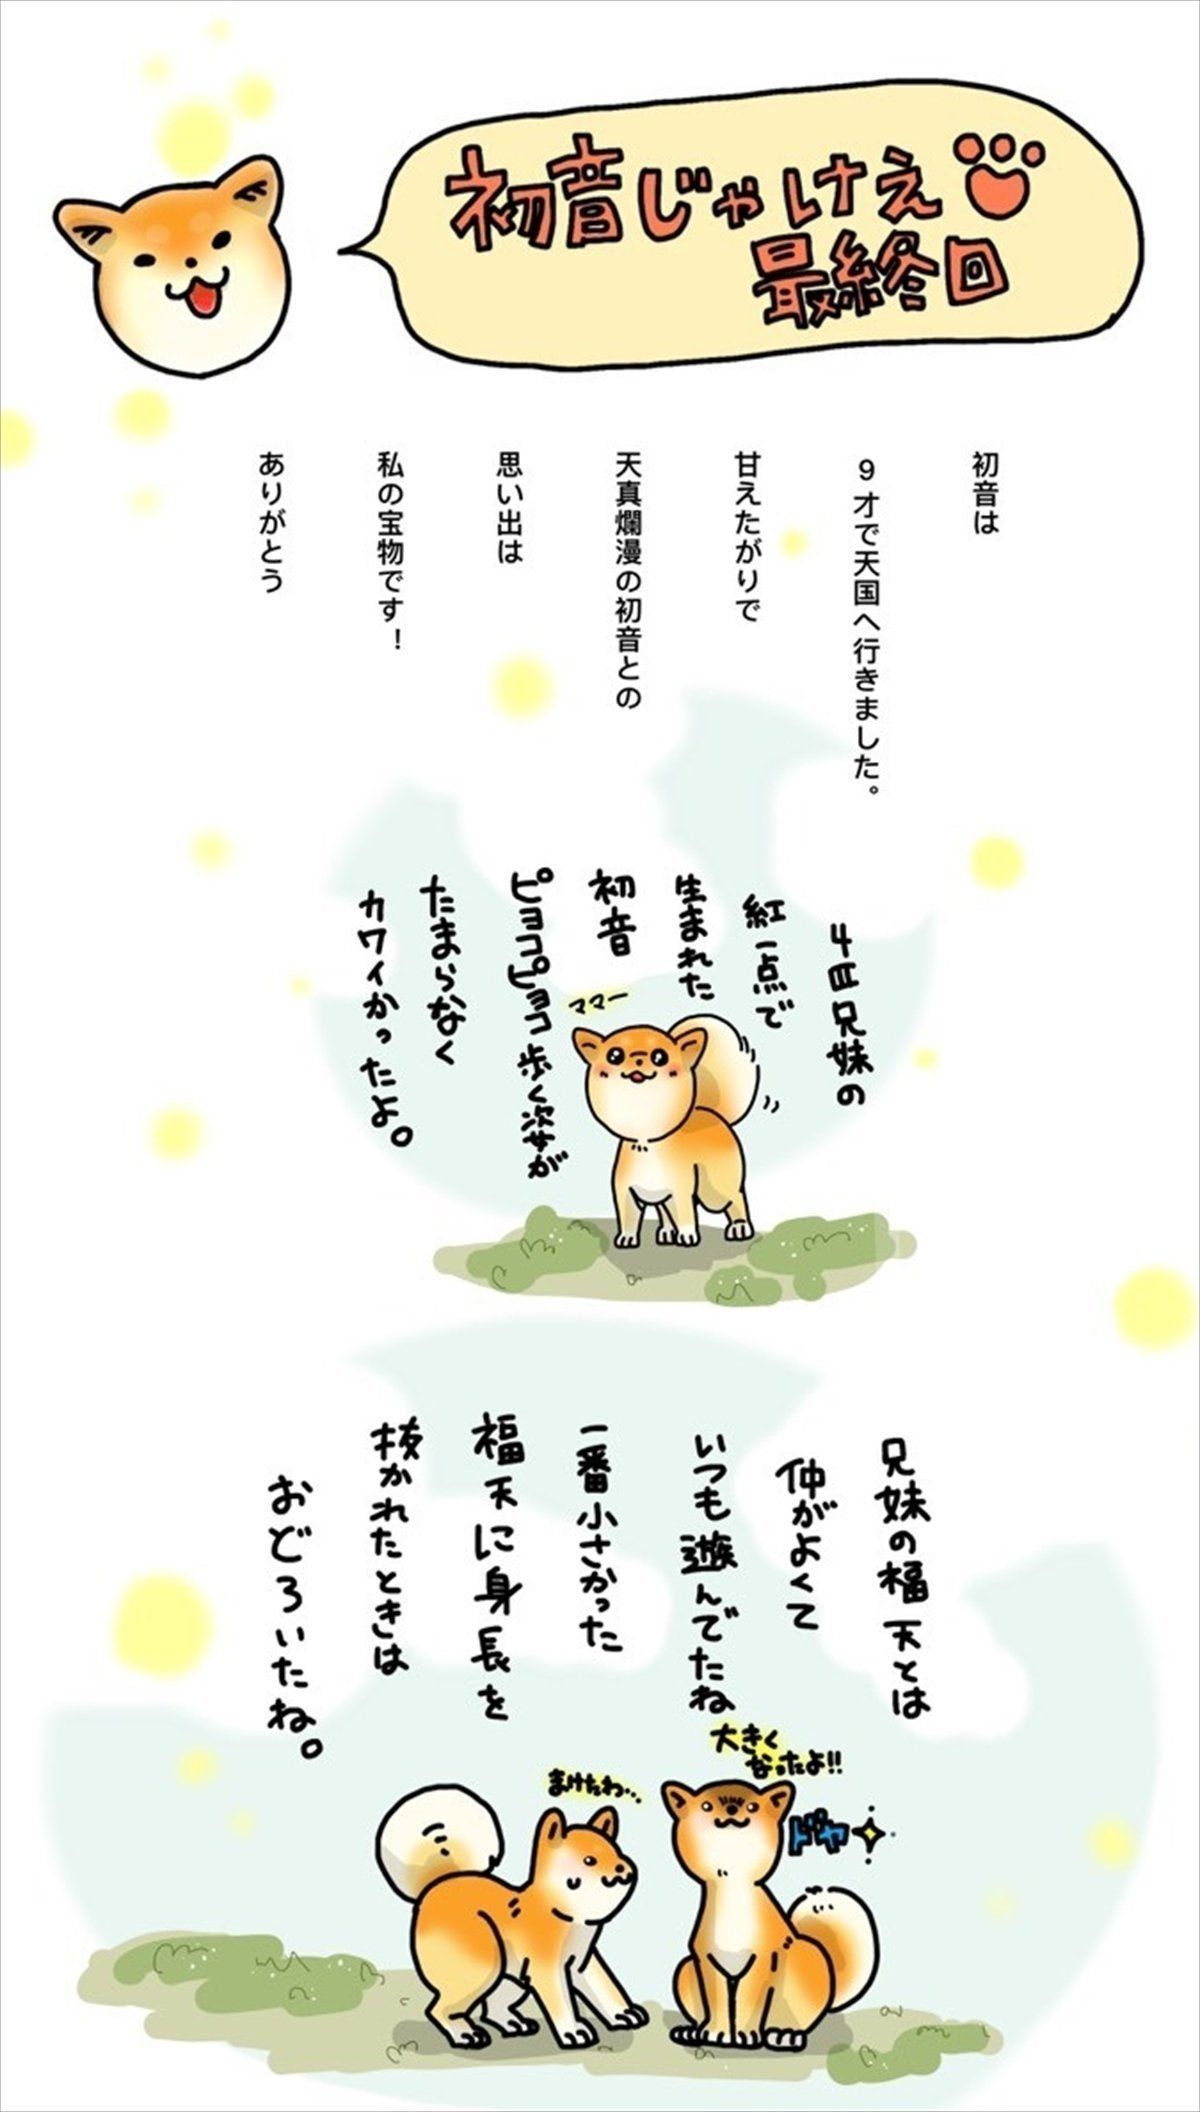 初音じゃけえ
最終回
初音は
9才で天国へ行きました。
甘えたがりで
天真爛漫の初音との
思い出は
私の宝物です！
ありがとう
4匹兄妹の
紅一点で
生まれた
初音
ピョコピョコ歩く姿が
たまらなく
カワイかったよ。
ママー
兄妹の福天とは
仲がよくて
いつも遊んでたね
一番小さかった
福天に身長を
抜かれたときは
おどろいたね。
大きく
なったよ!!
ドヤ
まけたわ…